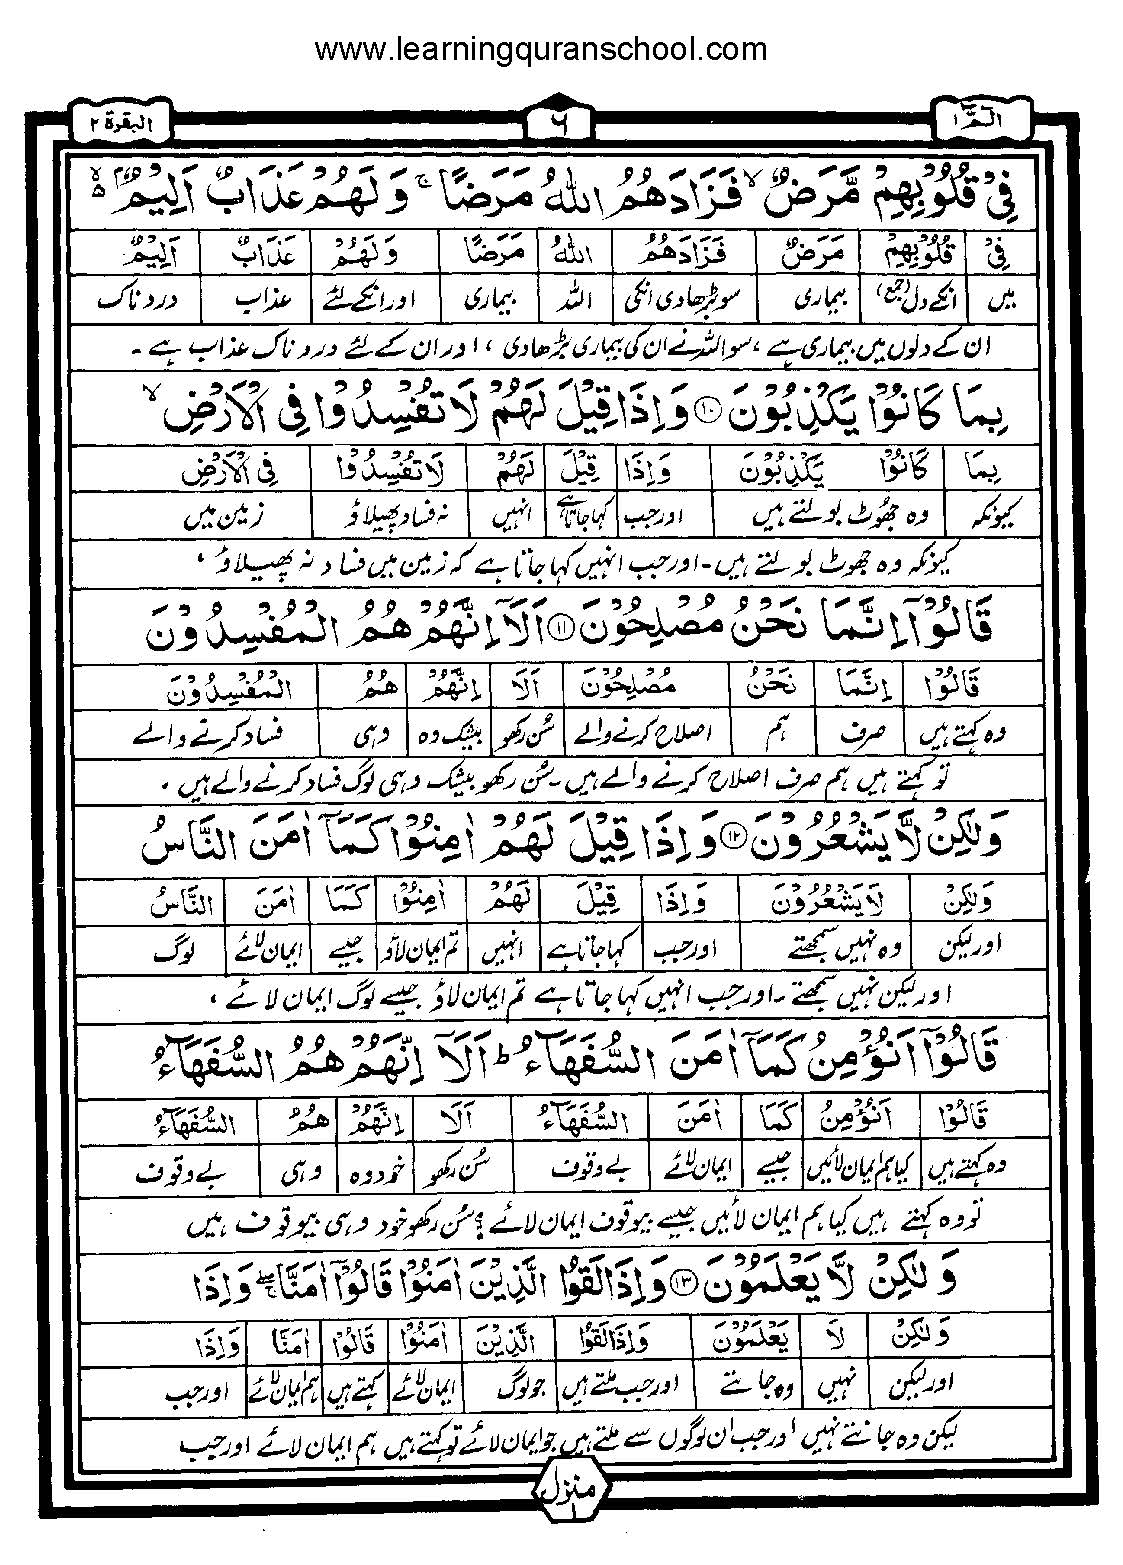 www.learningquranschool.com
الٓمّٓ ۱ ۶ البقرة ۲
فِیْ قُلُوْبِهِمْ مَّرَضٌ ۙ فَزَادَهُمُ اللّٰهُ مَرَضًا ۚ وَلَهُمْ عَذَابٌ اَلِیْمٌۢ ۙ۵
فِیْ قُلُوْبِهِمْ مَرَضٌ فَزَادَهُمُ اللّٰهُ مَرَضًا وَلَهُمْ عَذَابٌ اَلِیْمٌ
میں انکے دل (جمع) بیماری سو بڑھا دی انکی اللہ بیماری اور انکے لئے عذاب دردناک
ان کے دلوں میں بیماری ہے، سو اللہ نے ان کی بیماری بڑھا دی، اور ان کے لئے دردناک عذاب ہے۔
بِمَا كَانُوْا یَكْذِبُوْنَ ۱۰ وَاِذَا قِیْلَ لَهُمْ لَا تُفْسِدُوْا فِی الْاَرْضِ ۙ
بِمَا كَانُوْا یَكْذِبُوْنَ وَاِذَا قِیْلَ لَهُمْ لَا تُفْسِدُوْا فِی الْاَرْضِ
کیونکہ وہ جھوٹ بولتے ہیں اور جب کہا جاتا ہے انہیں نہ فساد پھیلاؤ زمین میں
کیونکہ وہ جھوٹ بولتے ہیں۔ اور جب انہیں کہا جاتا ہے کہ زمین میں فساد نہ پھیلاؤ،
قَالُوْۤا اِنَّمَا نَحْنُ مُصْلِحُوْنَ ۱۱ اَلَاۤ اِنَّهُمْ هُمُ الْمُفْسِدُوْنَ
قَالُوْا اِنَّمَا نَحْنُ مُصْلِحُوْنَ اَلَا اِنَّهُمْ هُمُ الْمُفْسِدُوْنَ
وہ کہتے ہیں صرف ہم اصلاح کرنے والے سُن رکھو بیشک وہ وہی فساد کرنے والے
تو کہتے ہیں ہم صرف اصلاح کرنے والے ہیں۔ سُن رکھو بیشک وہی لوگ فساد کرنے والے ہیں۔
وَلٰكِنْ لَّا یَشْعُرُوْنَ ۱۲ وَاِذَا قِیْلَ لَهُمْ اٰمِنُوْا كَمَاۤ اٰمَنَ النَّاسُ
وَلٰكِنْ لَا یَشْعُرُوْنَ وَاِذَا قِیْلَ لَهُمْ اٰمِنُوْا كَمَا اٰمَنَ النَّاسُ
اور لیکن وہ نہیں سمجھتے اور جب کہا جاتا ہے انہیں تم ایمان لاؤ جیسے ایمان لائے لوگ
اور لیکن نہیں سمجھتے۔ اور جب انہیں کہا جاتا ہے تم ایمان لاؤ جیسے لوگ ایمان لائے،
قَالُوْۤا اَنُؤْمِنُ كَمَاۤ اٰمَنَ السُّفَهَآءُ ؕ اَلَاۤ اِنَّهُمْ هُمُ السُّفَهَآءُ
قَالُوْا اَنُؤْمِنُ كَمَا اٰمَنَ السُّفَهَآءُ اَلَا اِنَّهُمْ هُمُ السُّفَهَآءُ
وہ کہتے ہیں کیا ہم ایمان لائیں جیسے ایمان لائے بے وقوف سُن رکھو خود وہ وہی بے وقوف
تو وہ کہتے ہیں کیا ہم ایمان لائیں جیسے بیوقوف ایمان لائے؟ سُن رکھو خود وہی بیوقوف ہیں
وَلٰكِنْ لَّا یَعْلَمُوْنَ ۱۳ وَاِذَا لَقُوا الَّذِیْنَ اٰمَنُوْا قَالُوْۤا اٰمَنَّا ۖۚ وَاِذَا
وَلٰكِنْ لَا یَعْلَمُوْنَ وَاِذَا لَقُوا الَّذِیْنَ اٰمَنُوْا قَالُوْا اٰمَنَّا وَاِذَا
اور لیکن نہیں وہ جانتے اور جب ملتے ہیں جو لوگ ایمان لائے کہتے ہیں ہم ایمان لائے اور جب
لیکن وہ جانتے نہیں اور جب ان لوگوں سے ملتے ہیں جو ایمان لائے تو کہتے ہیں ہم ایمان لائے اور جب
منزل ۱